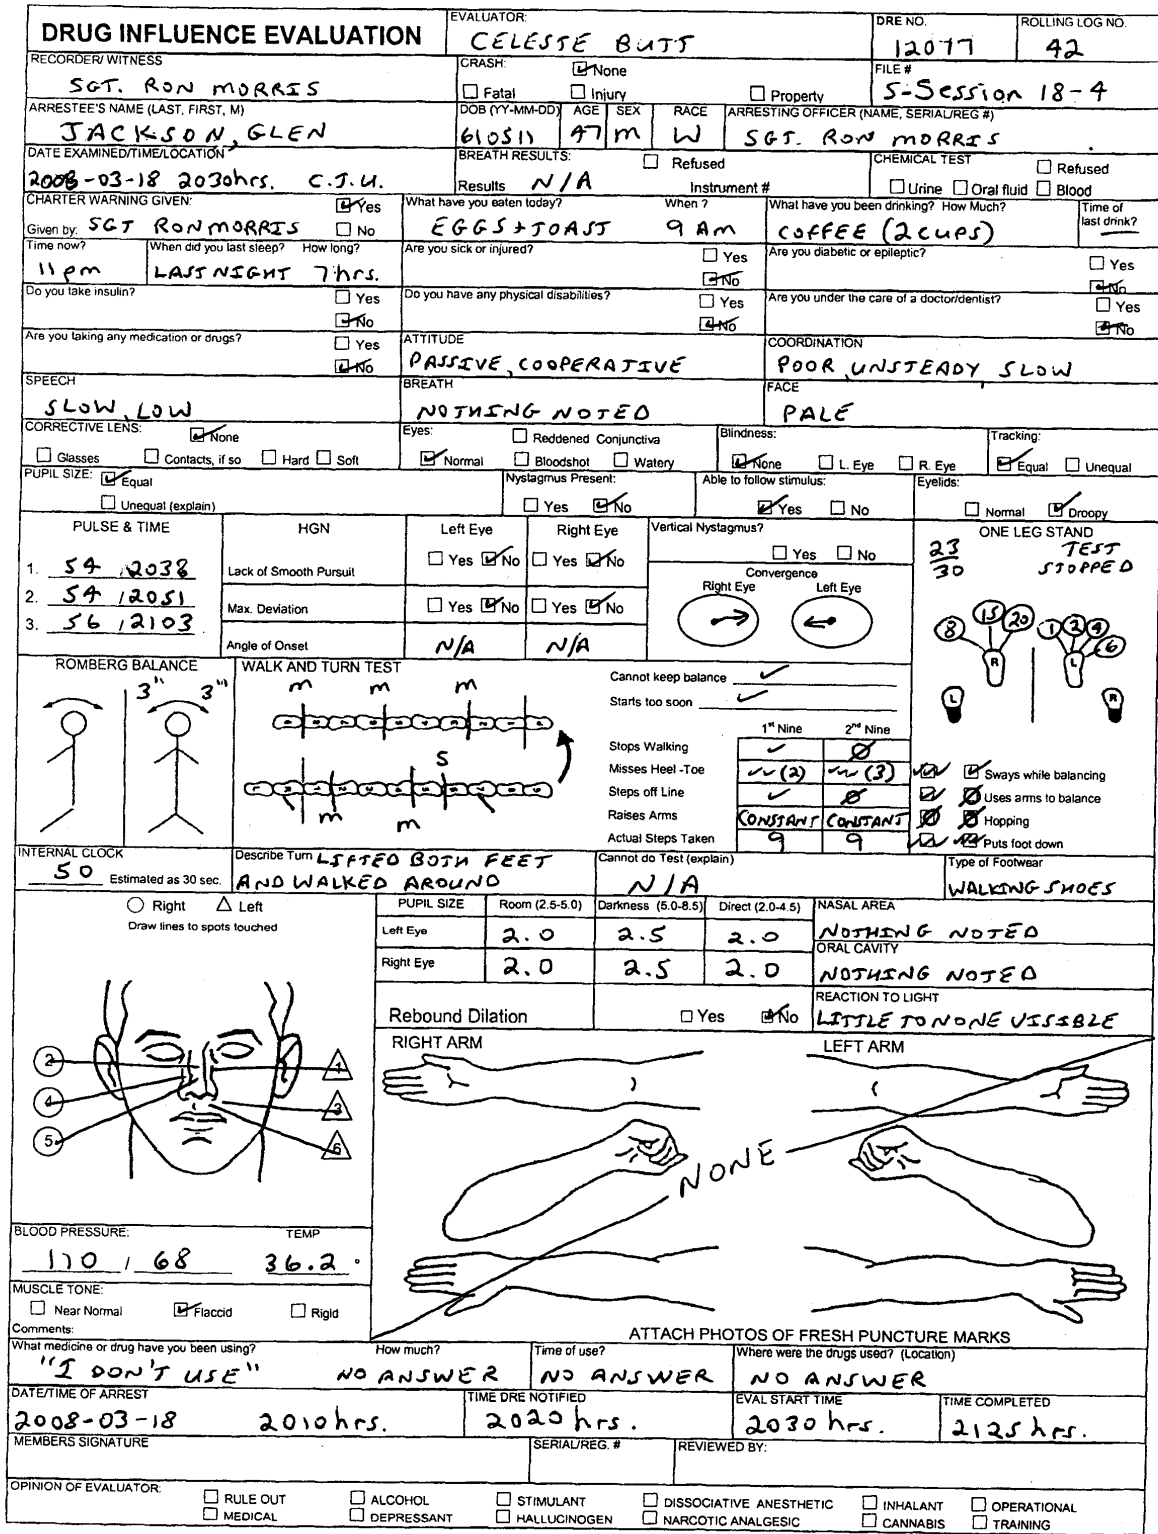 DRUG INFLUENCE EVALUATION
EVALUATOR: CELESTE BUTT
DRE NO. 12077
ROLLING LOG NO. 42
RECORDER/ WITNESS SGT. RON MORRIS
CRASH: None Fatal Injury Property
FILE # S-Session 18-4
ARRESTEE'S NAME (LAST, FIRST, M) JACKSON, GLEN
DOB (YY-MM-DD) 610511
AGE 47
SEX M
RACE W
ARRESTING OFFICER (NAME, SERIAL/REG #) SGT. RON MORRIS
DATE EXAMINED/TIME/LOCATION 2008-03-18 2030hrs. C.J.U.
BREATH RESULTS: Refused
Results N/A Instrument #
CHEMICAL TEST Refused
Urine Oral fluid Blood
CHARTER WARNING GIVEN: Yes
Given by: SGT RON MORRIS No
What have you eaten today? When ?
EGGS + TOAST 9 Am
What have you been drinking? How Much?
COFFEE (2 CUPS)
Time of last drink?
Time now? 11 pm
When did you last sleep? How long?
LAST NIGHT 7 hrs.
Are you sick or injured? Yes No
Are you diabetic or epileptic? Yes No
Do you take insulin? Yes No
Do you have any physical disabilities? Yes No
Are you under the care of a doctor/dentist? Yes No
Are you taking any medication or drugs? Yes No
ATTITUDE PASSIVE, COOPERATIVE
COORDINATION POOR, UNSTEADY, SLOW
SPEECH SLOW, LOW
BREATH NOTHING NOTED
FACE PALE
CORRECTIVE LENS: None
Glasses Contacts, if so Hard Soft
Eyes: Reddened Conjunctiva
Normal Bloodshot Watery
Blindness: None L. Eye R. Eye
Tracking: Equal Unequal
PUPIL SIZE: Equal
Unequal (explain)
Nystagmus Present: Yes No
Able to follow stimulus: Yes No
Eyelids: Normal Droopy
PULSE & TIME
1. 54 / 2038
2. 54 / 2051
3. 56 / 2103
HGN Left Eye Right Eye
Lack of Smooth Pursuit Yes No Yes No
Max. Deviation Yes No Yes No
Angle of Onset N/A N/A
Vertical Nystagmus? Yes No
Convergence
Right Eye Left Eye
ONE LEG STAND
23/30 TEST STOPPED
8 15 20 1 2 4 6
R L
L R
Sways while balancing
Uses arms to balance
Hopping
Puts foot down
ROMBERG BALANCE
3" 3"
WALK AND TURN TEST
M M M
S
M M
Cannot keep balance
Starts too soon
1st Nine 2nd Nine
Stops Walking
Misses Heel -Toe (2) (3)
Steps off Line
Raises Arms CONSTANT CONSTANT
Actual Steps Taken 9 9
INTERNAL CLOCK
50 Estimated as 30 sec.
Describe Turn LIFTED BOTH FEET
AND WALKED AROUND
Cannot do Test (explain)
N/A
Type of Footwear
WALKING SHOES
Right Left
Draw lines to spots touched
2 1
4 3
5 6
PUPIL SIZE Room (2.5-5.0) Darkness (5.0-8.5) Direct (2.0-4.5)
Left Eye 2.0 2.5 2.0
Right Eye 2.0 2.5 2.0
Rebound Dilation Yes No
NASAL AREA
NOTHING NOTED
ORAL CAVITY
NOTHING NOTED
REACTION TO LIGHT
LITTLE TO NONE VISIBLE
RIGHT ARM LEFT ARM
NONE
ATTACH PHOTOS OF FRESH PUNCTURE MARKS
BLOOD PRESSURE: TEMP
110 / 68 36.2 °
MUSCLE TONE:
Near Normal Flaccid Rigid
Comments:
What medicine or drug have you been using? How much?
"I DON'T USE" NO ANSWER
Time of use? NO ANSWER
Where were the drugs used? (Location) NO ANSWER
DATE/TIME OF ARREST
2008-03-18 2010hrs.
TIME DRE NOTIFIED 2020 hrs.
EVAL START TIME 2030 hrs.
TIME COMPLETED 2125 hrs.
MEMBERS SIGNATURE SERIAL/REG. # REVIEWED BY:
OPINION OF EVALUATOR:
RULE OUT ALCOHOL STIMULANT DISSOCIATIVE ANESTHETIC INHALANT OPERATIONAL
MEDICAL DEPRESSANT HALLUCINOGEN NARCOTIC ANALGESIC CANNABIS TRAINING